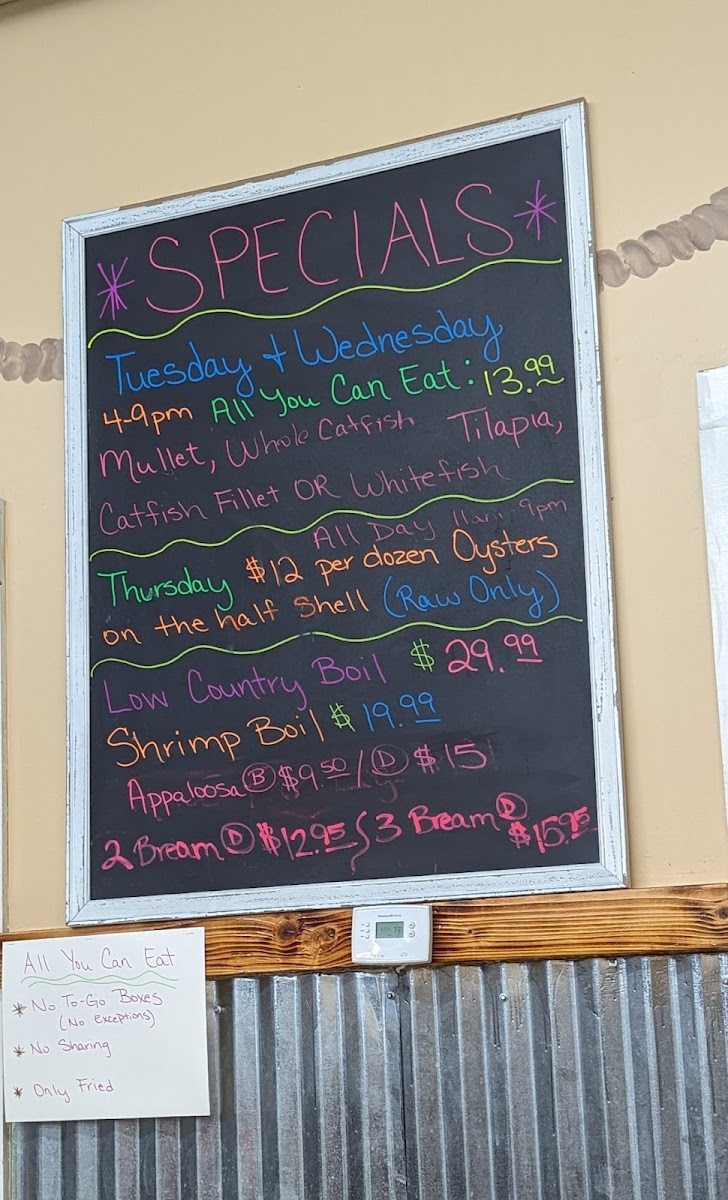 * SPECIALS *
Tuesday + Wednesday
4-9pm All You Can Eat: 13.99
Mullet, Whole Catfish Tilapia,
Catfish Fillet OR Whitefish
All Day 11am 9pm
Thursday $12 per dozen Oysters
on the half Shell (Raw Only)
Low Country Boil $29.99
Shrimp Boil $19.99
Appaloosa Ⓑ $9.50 / Ⓓ $15
2 Bream Ⓓ $12.95 { 3 Bream Ⓓ $15.95
All You Can Eat
* No To-Go Boxes
(No exceptions)
* No Sharing
* Only Fried